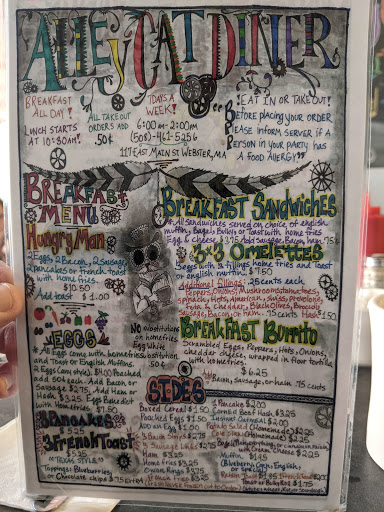 Alley Cat Diner
Breakfast All Day!
Lunch starts at 10:30am!
All takeout orders add .50¢
7 days a week!
6:00 am - 2:00pm
(508)-461-5256
117 East Main St Webster, MA
Eat in or take out!
Before placing your order
Please inform server if a
Person in your party has
a food allergy"
Breakfast Menu
Hungry Man
2 eggs, 2 Bacon, 2 Sausage,
2 pancakes or french toast
with home fries.
Add toast $1.00
Eggs
All Eggs come with homefries
and Toast or English Muffins.
2 Eggs (any style).
add 50¢ each. Add Bacon or
Sausage $2.75, Add Ham or
Hash $3.25.
with homefries. $7.50
3 Pancakes
$5.25
3 French Toast
$5.25
"Texas Style"
Toppings: Blueberries
or Chocolate chips $.75 extra
No substitutions
on homefries
Egg white
substitution
.50¢
Breakfast Sandwiches
All Sandwiches served on choice of english
muffin, Bagel, Bulkie or Toast with home fries
Egg & cheese $3.75 Add Sausage, Bacon, ham .75
3·3 Omelettes
3 eggs with 3 fillings, home fries and toast
or english muffin. $7.50
Additional fillings: .25 cents each
Peppers, Onions, Mushrooms, tomatoes,
spinach, Hots, American, Swiss, provolone,
Cheddar, Black Olives, Broccoli
sausage, Bacon, or ham. .75 cents Hash $1.50
Breakfast Burrito
Scrambled Eggs, Peppers, Hots, Onions,
cheddar cheese, wrapped in flour tortilla
with homefries.
$6.25
Bacon, Sausage, or ham .75 cents
Sides
Boxed Cereal $1.50
Poached Eggs $1.50
Add an Egg $1.00
3 Bacon Strips $2.75
Ham $3.25
Home fries $3.25
Onion Rings $3.75
French Fries $3.25
2 Pancake $2.00
Corned Beef Hash $3.25
Instant Oatmeal $2.00
Potato Salad (Homemade) $2.25
Cole Slaw (Homemade) $2.25
with Cream Cheese $2.25
Muffin $1.95
(Blueberry, Corn, English,
or special)